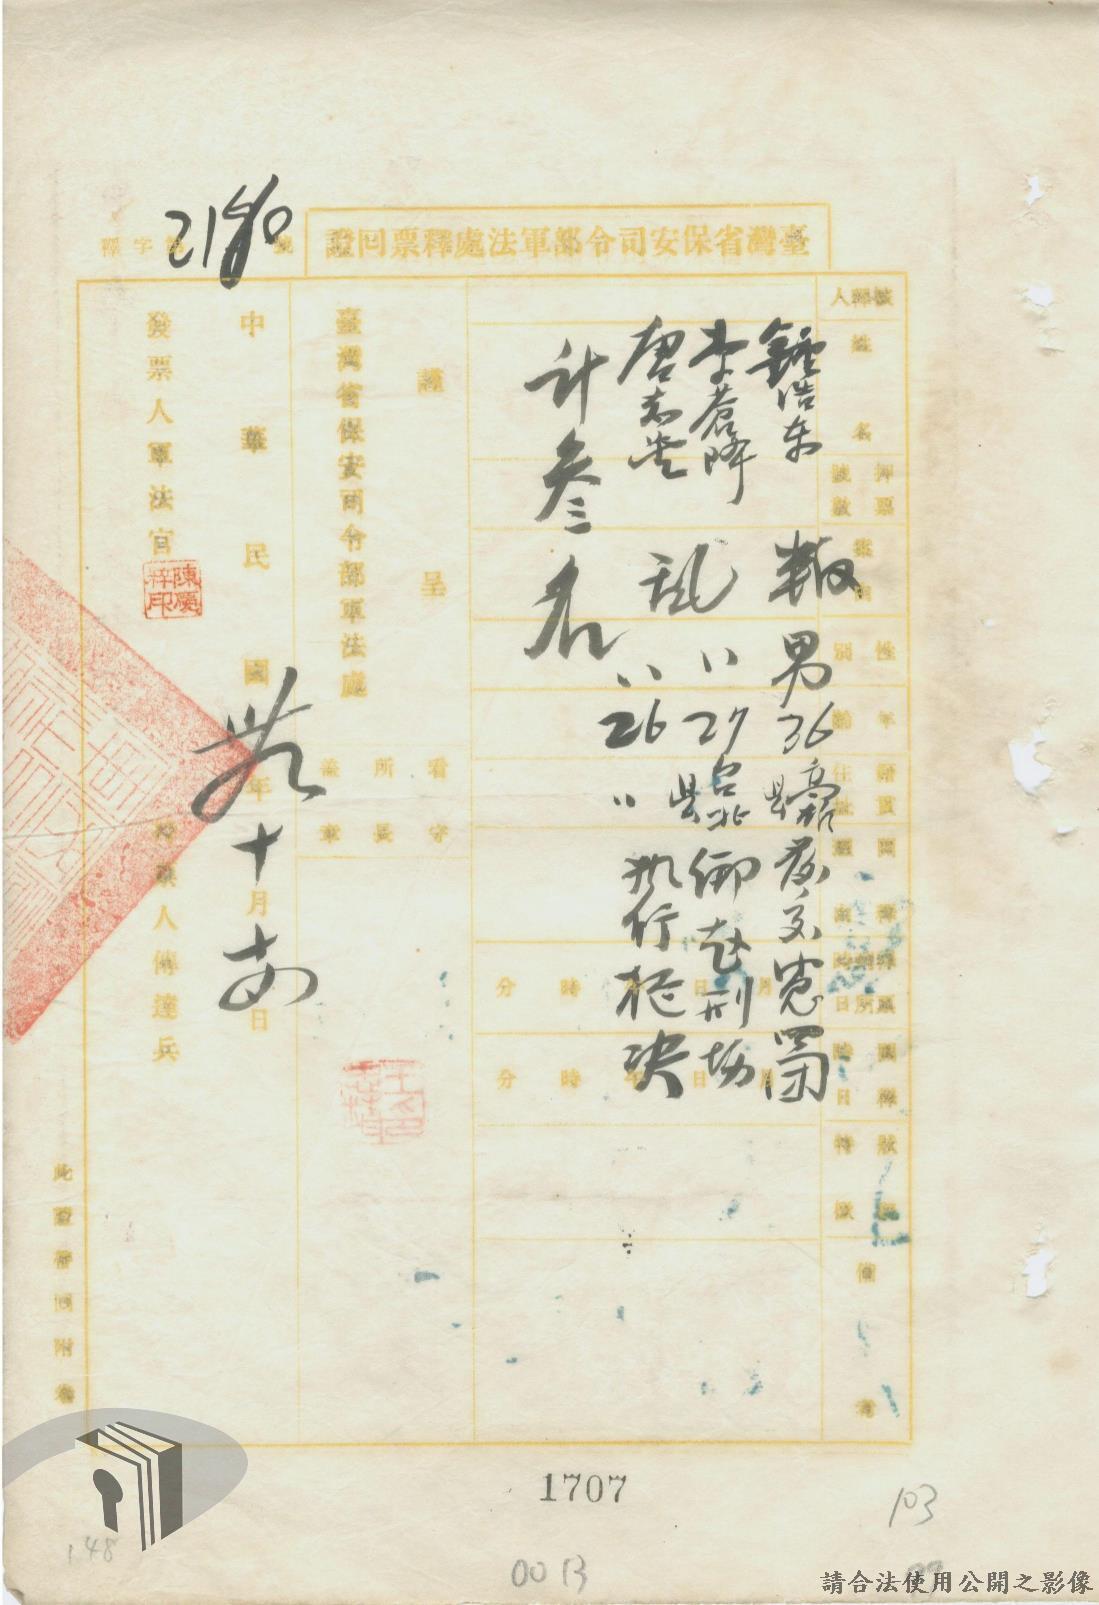 臺灣省保安司令部軍法處釋票回證
釋字第2180號
被釋人
姓名
押票號數
案由
性別
年齡
籍貫住址
開釋日時
備考
鍾浩東 叛 男 36 高雄縣 發交憲四團
李蒼降 〃 27 台北縣 綁赴刑場
唐志堂 乱 〃 26 〃 執行槍決
計叁名
月 日 午 時 分
月 日 午 時 分
謹呈
臺灣省保安司令部軍法處
看守所所長
蓋章
中華民國卅九年十月十四日
發票人軍法官
陳慶粹印
釋票人傳達兵
此證發回附卷
1707
103
148
00B
請合法使用公開之影像